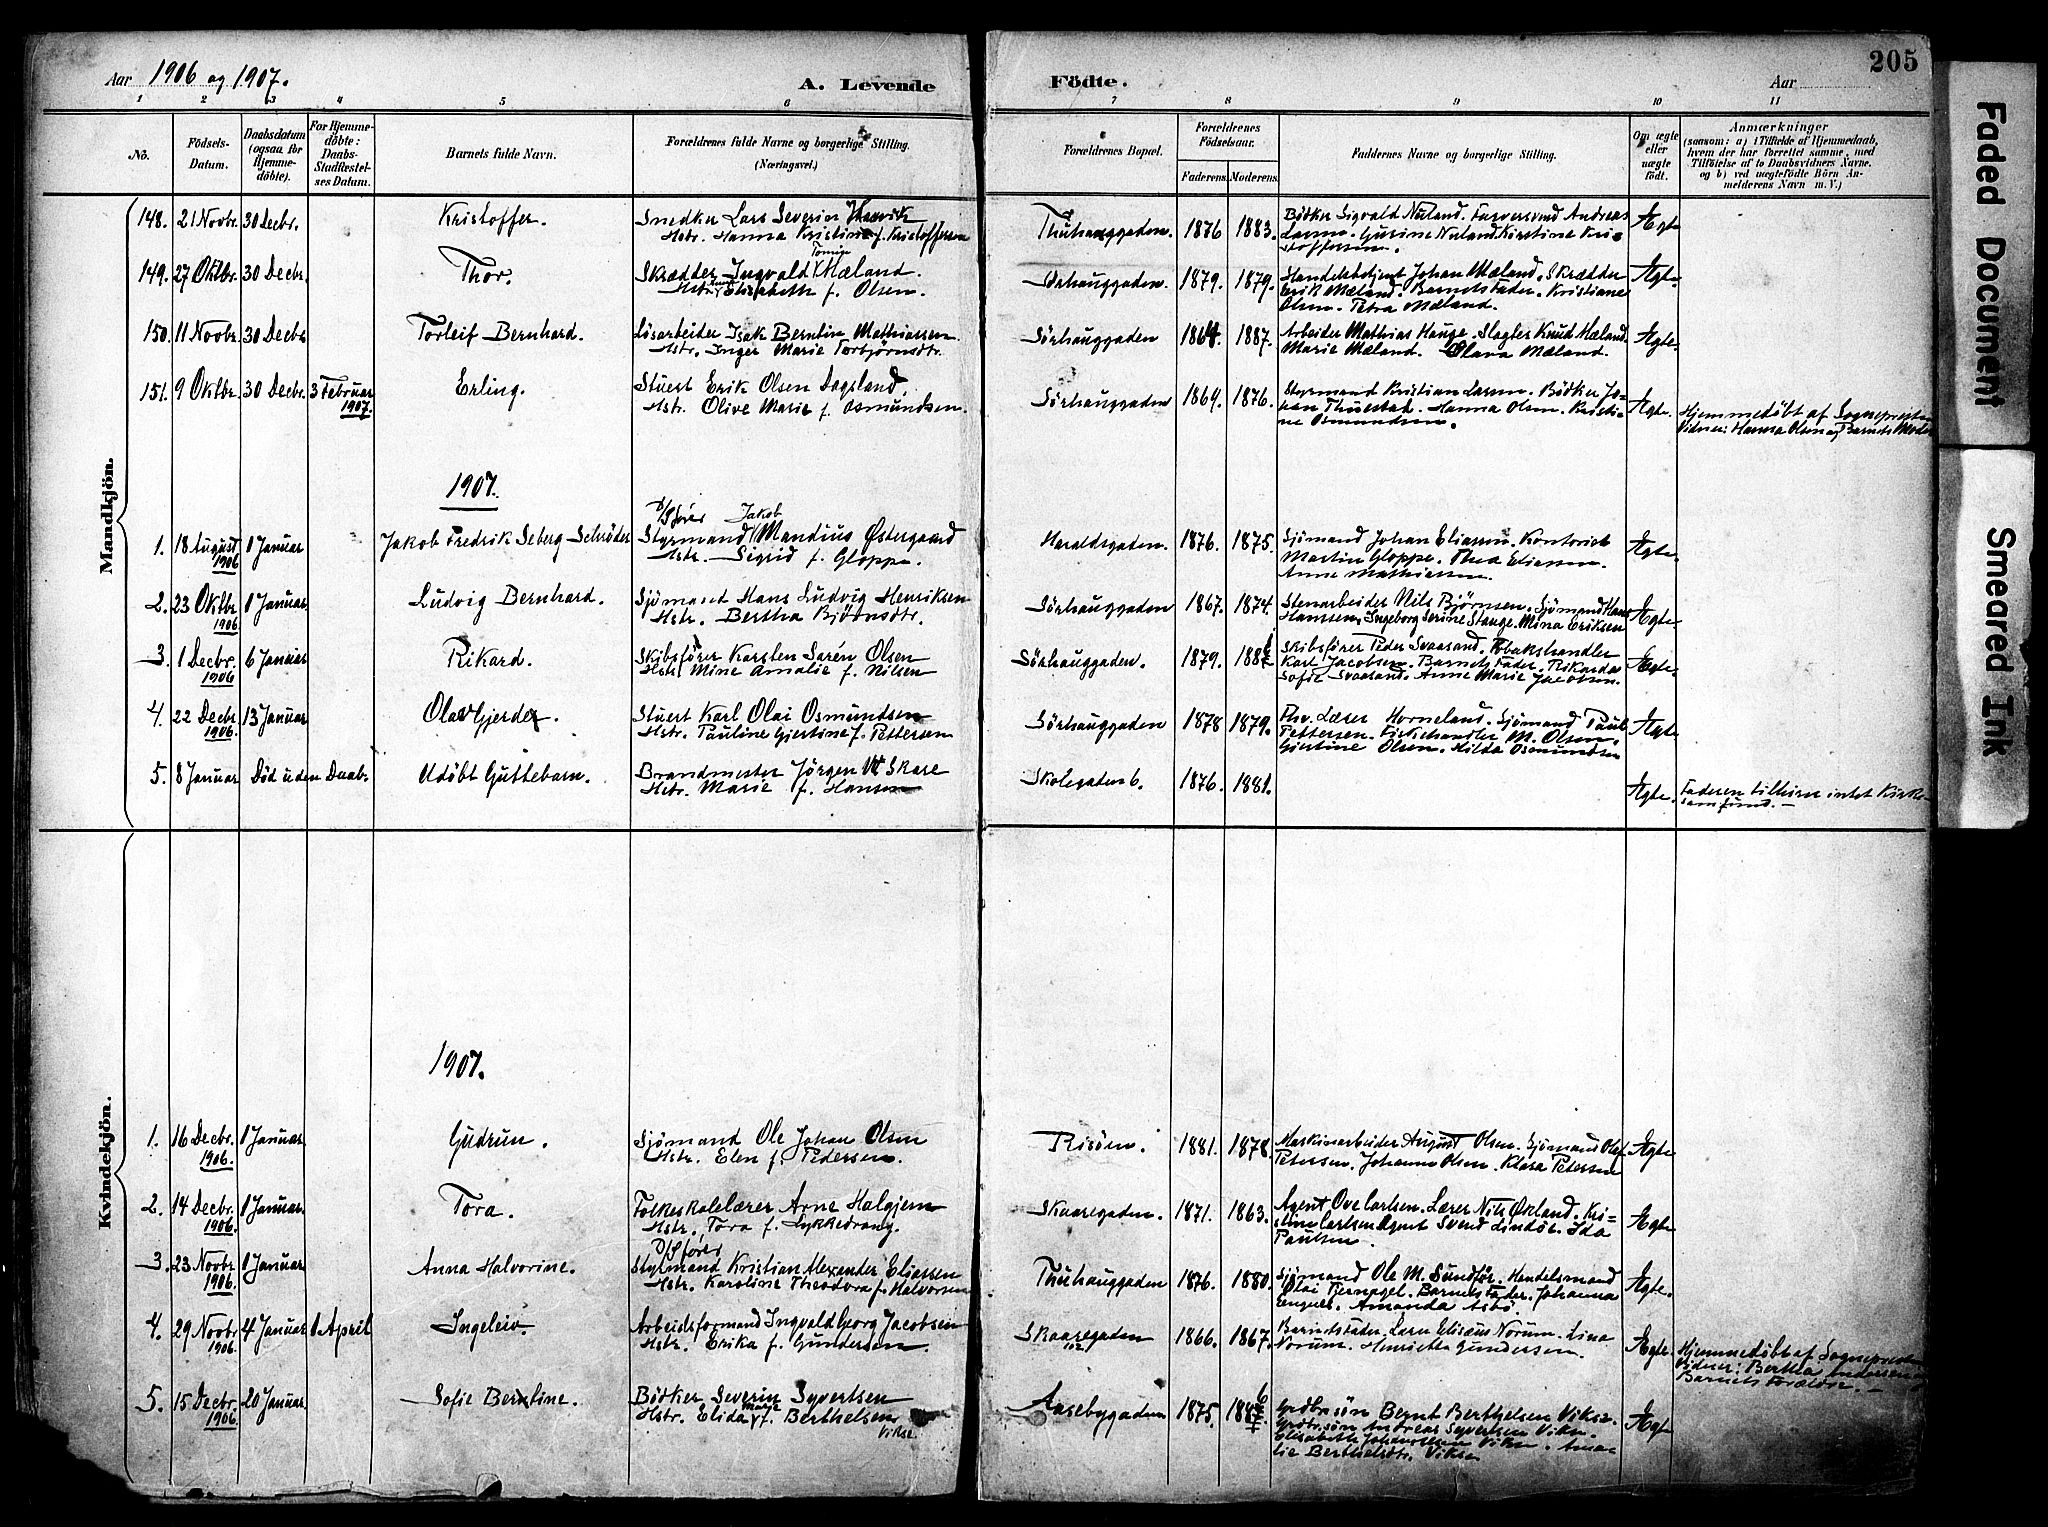 205
Aar 1906 og 1907.
A. Levende
Födte.
Aar
1 2 3 4 5 6 7 8 9 10 11
No.
Födsels-
Datum.
Daabsdatum
(ogsaa for
Hjemme-
döbte).
For Hjemme-
döbte:
Daabs-
Stadfæstel-
ses Datum.
Barnets fulde Navn.
Forældrenes fulde Navne og borgerlige Stilling.
(Næringsvei.)
Forældrenes Bopæl.
Forældrenes
Födselsaar.
Faderens. Moderens.
Faddernes Navne og borgerlige Stilling.
Om ægte
eller
uægte
födt.
Anmærkninger
(saasom: a) i Tilfælde af Hjemmedaab,
hvem der har forrettet samme, med
Tilföielse af to Daabsvidners Navne,
og b) ved uægtefödte Börn An-
melderens Navn m. V.)
Mandkjön.
148. 21 Novbr. 30 Decbr. Kristoffer. Snedker Lars Severin
Hstr. Hanna Kristine f. Kristoffersen
Thuhauggaden. 1876 1883. Bödker Sigvald Nuland. Andreas
Larsen. Gurine Nuland. Kirstine Kri-
stoffersen.
Ægte
149. 27 Oktbr. 30 Decbr. Thor. Skrædder Ingvald Tomin Mæland.
Hstr. Elisabeth f. Olsen.
Sörhauggaden. 1879. 1879. Handelsbetjent Johan Mæland. Skrædder
Erik Mæland. Barnets Fader. Kristiane
Olsen. Petra Mæland.
Ægte
150. 11 Novbr. 30 Decbr. Torleif Bernhard. Lösarbeider Isak Berntin Mathiassen
Hstr. Inger Marie Torbjörnsdtr.
Sörhauggaden 1864. 1887. Arbeider Mathias Hauge. Slagter Knud Mæland.
Marie Mæland. Olava Mæland.
Ægte.
151. 9 Oktbr. 30 Decbr. 3 Februar
1907.
Erling. Stuert Erik Olsen Dagsland.
Hstr. Olive Marie f. Osmundsen.
Sörhauggaden 1869. 1876. Styrmand Kristian Larsen. Bödker Jo-
han Thuestad. Hanna Olsen. Kristi-
ne Osmundsen.
Ægte. Hjemmedöbt af Sognepresten
Vidner: Hanna Olsen og Barnets Moder
1907.
1. 18 August
1906
1 Januar Jakob Fredrik Seberg Schröder D/Sförer Jakob
Styrmand Mandius Østergaard
Hstr. Sigrid f. Gloppe.
Haraldsgaden. 1876. 1875. Sjömand Johan Eliassen. Kontorist
Martin Gloppe. Thea Eliassen.
Anne Mathiassen.
Ægte
2. 23 Oktbr
1906
1 Januar Ludvig Bernhard. Sjömand Hans Ludvig Henriksen
Hstr. Bertha Bjönsdtr.
Sörhauggaden 1867. 1874. Stenarbeider Nils Björnsen. Sjömand Hans
Hanssen. Ingeborg Serine Stange. Mina Eriksen
Ægte
3. 1 Decbr.
1906
6 Januar Rikard. Skibsförer Karsten Sarén Olsen
Hstr. Mine Amalie f. Nilsen
Sörhauggaden. 1879. Skibsförer Peder Svaasand. Tobakshandler
Karl Jacobsen. Barnets Fader. Rikarda
Sofie Svaasand. Anne Marie Jacobsen.
Ægte
4. 22 Decbr
1906.
13 Januar Olav Gjerder. Stuert Karl Olai Osmundsen
Hstr. Pauline Gjertine f. Pettersen
Sörhauggaden 1878 1879. Lærer Horneland. Sjömand Paul
Pettersen. Fiskehandler M. Olsen.
Gjertine Olsen. Hilda Osmundsen
Ægte
5. 8 Januar. Död uden Daab. Udöbt Guttebarn. Brandmester Jörgen Skare
Hstr. Marie f. Hansen
Skolegaden 6. 1876. 1881.
Ægte. Faderen tilhörer intet Kirke-
samfund.
Kvindekjön.
1907.
1. 16 Decbr.
1906.
1 Januar Gudrun. Sjömand Ole Johan Olsen
Hstr. Elen f. Pedersen.
Risöen. 1881. 1878. Maskinarbeider August Olsen. Sjömand Olaf
Petersen. Johanne Olsen. Klara Petersen
Ægte
2. 14 Decbr.
1906.
1 Januar Tora. Folkeskolelærer Arne Halgjem
Hstr. Tora f. Lykkedrang
Skaaregaden. 1871. 1863. Agent Ove Carlsen. Lærer Nils Økland. Kri-
stine Carlsen Agent Svend Lindöe. Ida
Paulsen.
Ægte
3. 23 Novbr
1906.
1 Januar Anna Halvorine. D/Sförer
Styrmand Kristian Alexander Eliassen
Hstr. Karoline Theodora f. Halvorsen
Thuhauggaden 1876. 1880. Sjömand Ole M. Sundför. Handelsmand
Olai Tjernagel. Barnets Fader. Johanna
Amanda Asbö.
Ægte.
4. 29 Novbr
1906.
4 Januar 1 April Ingeleiv. Arbeidsformand Ingvald Georg Jacobsen
Hstr. Erika f. Gundersen.
Skaaregaden
102
1866. 1867. Barnets Fader. Lærer Elisæus Norum. Lina
Norum. Henriette Gundersen.
Ægte. Hjemmedöbt af Sognepresten
Vidner: Bertha Andersen
Barnets Forældre.
5. 15 Decbr.
1906
20 Januar. Sofie Berntine. Bödker Severin Syvertsen
Hstr. Elida Marie f. Berthelsen
Vikse.
Aasebygaden 1875. Gaardbr.sön Bernt Berthelsen Vikse.
Gaardbr.sön Andreas Syvertsen Vikse.
Elisabeth Vikse. Ama-
lie Berthelsdtr. Vikse
Ægte
Faded Document
Smeared Ink